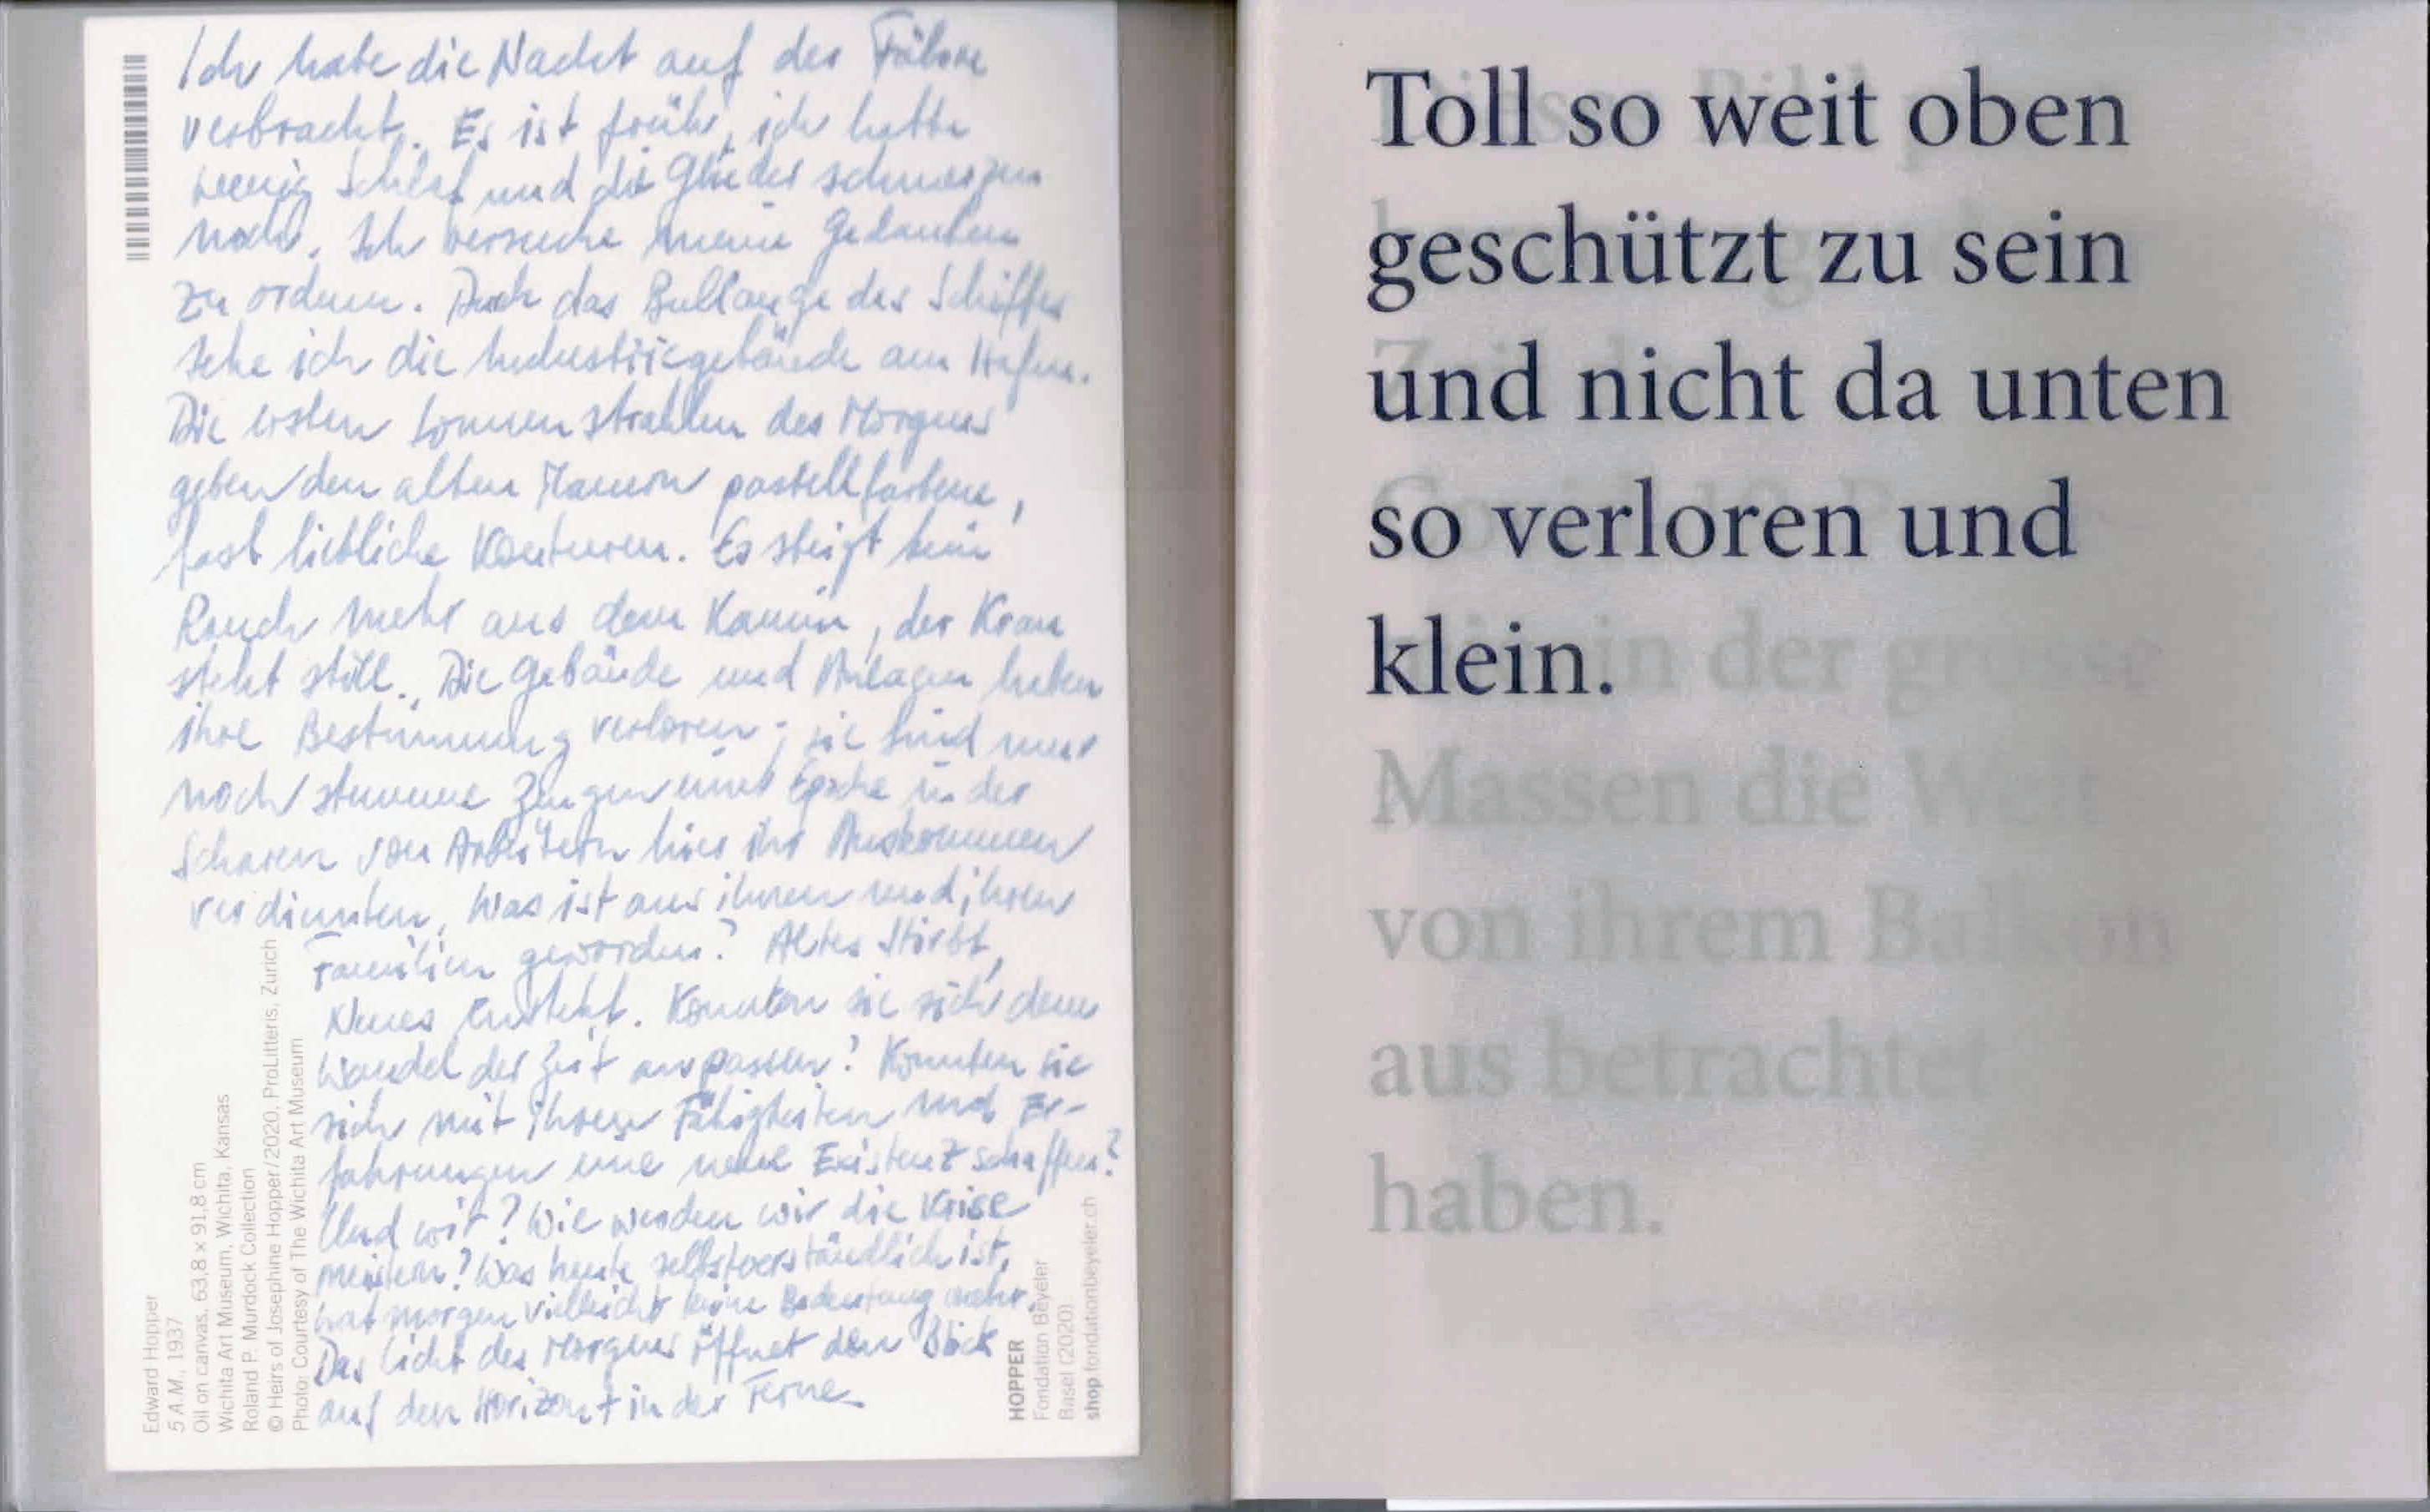 Ich habe die Nacht auf der Fähre
verbracht. Es ist früh, ich hatte
wenig Schlaf und die Glieder schmerzen
noch. Ich versuche meine Gedanken
zu ordnen. Durch das Bullauge des Schiffes
sehe ich die Industriegebäude am Hafen.
Die ersten Sonnenstrahlen des Morgens
geben den alten Mauern pastellfarbene,
fast liebliche Konturen. Es steigt kein
Rauch mehr aus dem Kamin, der Kran
steht still. Die Gebäude und Anlagen haben
ihre Bestimmung verloren; sie sind nur
noch stumme Zeugen einer Epoche in der
Scharen von Arbeitern hier ihr Auskommen
verdienten. Was ist aus ihnen und ihren
Familien geworden? Altes stirbt,
Neues entsteht. Konnten sie sich dem
Wandel der Zeit anpassen? Konnten sie
sich mit ihren Fähigkeiten und Er-
fahrungen eine neue Existenz schaffen?
Und wir? Wie werden wir die Krise
meistern? Was heute selbstverständlich ist,
hat morgen vielleicht keine Bedeutung mehr.
Das Licht des Morgens öffnet den Blick
auf den Horizont in der Ferne
Edward Hopper
5 A.M., 1937
Oil on canvas, 63,8 x 91,8 cm
Wichita Art Museum, Wichita, Kansas
Roland P. Murdock Collection
© Heirs of Josephine Hopper/2020, ProLitteris, Zurich
Photo: Courtesy of The Wichita Art Museum
HOPPER
Fondation Beyeler
Basel (2020)
shop.fondationbeyeler.ch
Toll so weit oben
geschützt zu sein
und nicht da unten
so verloren und
klein.
in der grosse
Massen die Welt
von ihrem Balkon
aus betrachtet
haben.